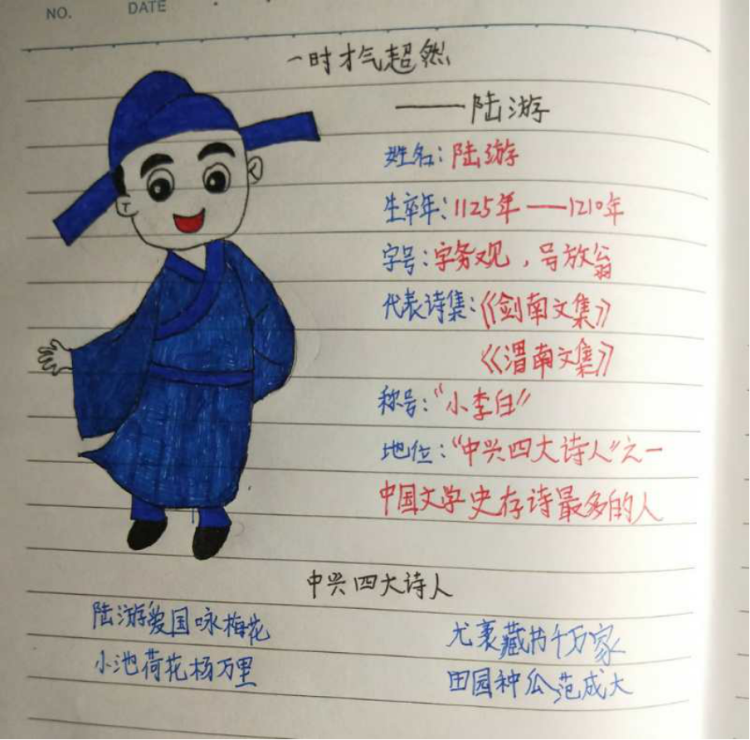 NO.
DATE
一时才气超然
——陆游
姓名:陆游
生卒年:1125年——1210年
字号:字务观,号放翁
代表诗集:《剑南文集》
《渭南文集》
称号:“小李白”
地位:“中兴四大诗人”之一
中国文学史存诗最多的人
中兴四大诗人
陆游爱国咏梅花
尤袤藏书千万家
小池荷花杨万里
田园种瓜范成大